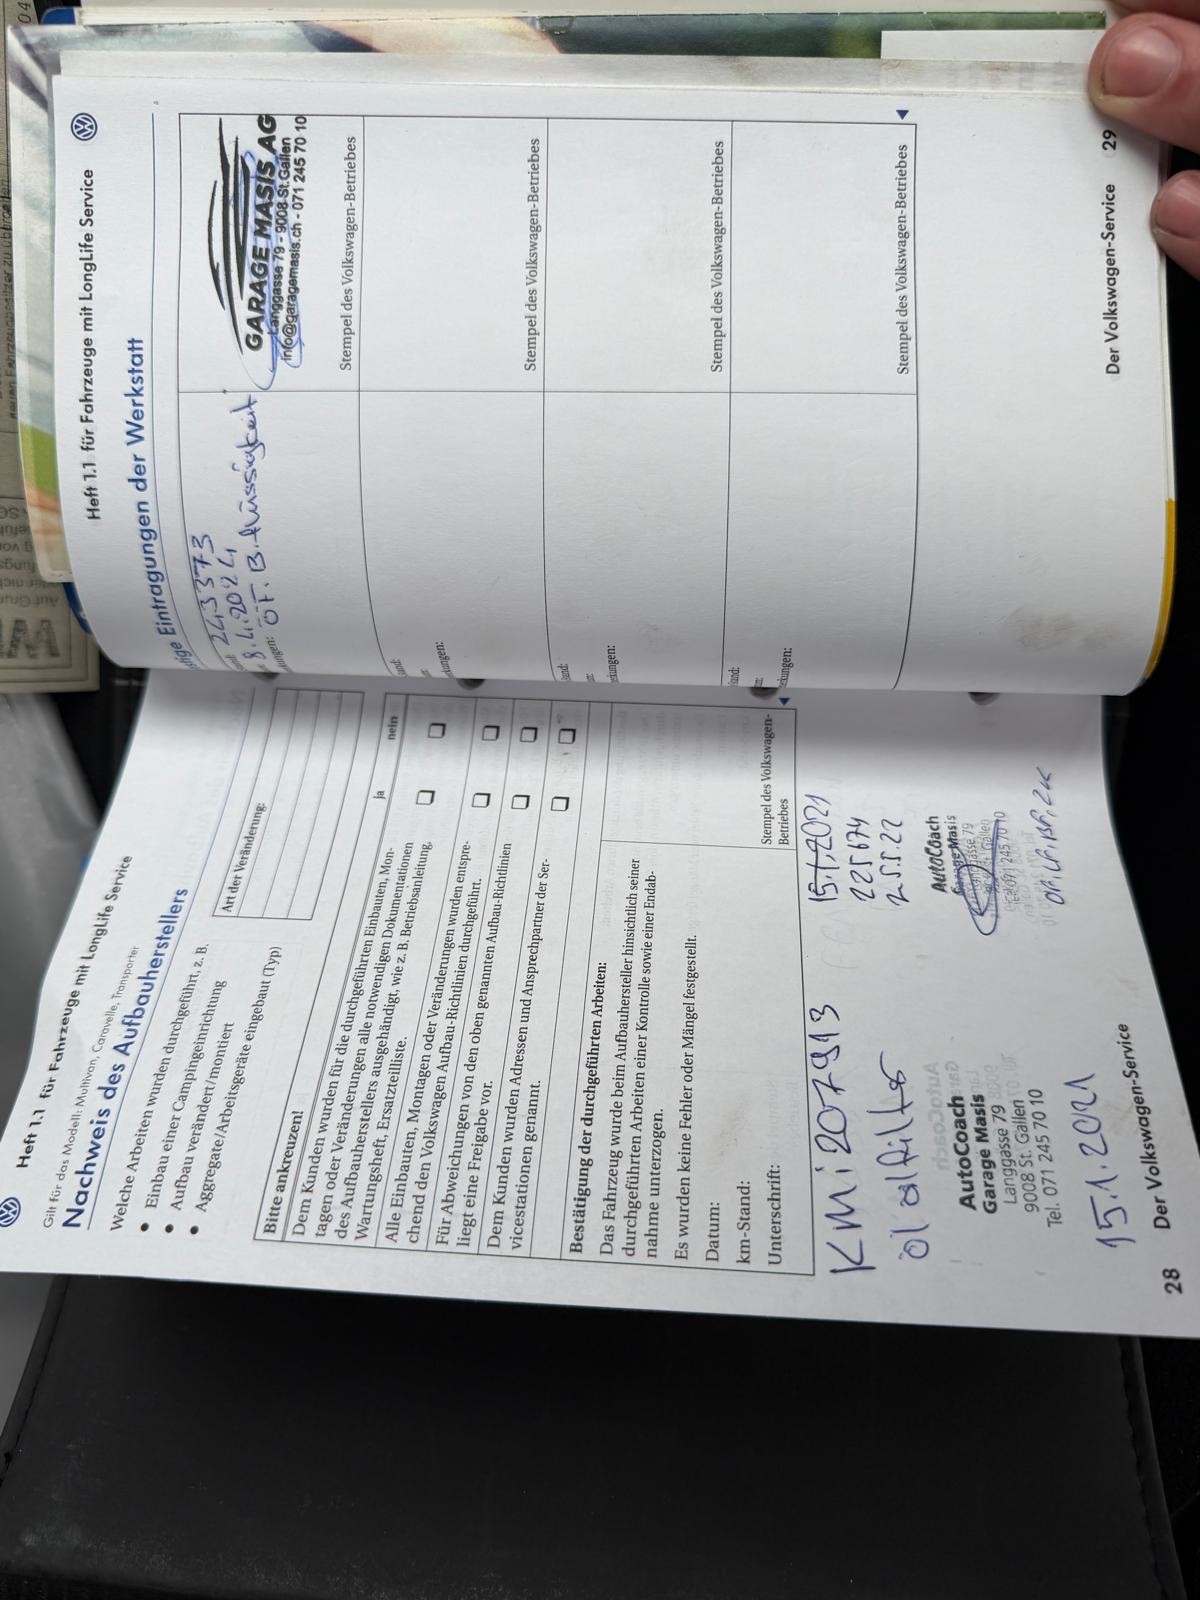 Heft 1.1 für Fahrzeuge mit LongLife Service
Gilt für das Modell: Multivan, Caravelle, Transporter
Nachweis des Aufbauherstellers
Welche Arbeiten wurden durchgeführt, z. B.
● Einbau einer Campingeinrichtung
● Aufbau verändert/montiert
● Aggregate/Arbeitsgeräte eingebaut (Typ)
Art der Veränderung:
Bitte ankreuzen!
ja nein
Dem Kunden wurden für die durchgeführten Einbauten, Mon-
tagen oder Veränderungen alle notwendigen Dokumentationen
des Aufbauherstellers ausgehändigt, wie z. B. Betriebsanleitung,
Wartungsheft, Ersatzteilliste.
Alle Einbauten, Montagen oder Veränderungen wurden entspre-
chend den Volkswagen Aufbau-Richtlinien durchgeführt.
Für Abweichungen von den oben genannten Aufbau-Richtlinien
liegt eine Freigabe vor.
Dem Kunden wurden Adressen und Ansprechpartner der Ser-
vicestationen genannt.
Bestätigung der durchgeführten Arbeiten:
Das Fahrzeug wurde beim Aufbauhersteller hinsichtlich seiner
durchgeführten Arbeiten einer Kontrolle sowie einer Endab-
nahme unterzogen.
Es wurden keine Fehler oder Mängel festgestellt.
Datum:
km-Stand:
Unterschrift:
Stempel des Volkswagen-
Betriebes
Km: 207913
15.1.2021
225674
25.5.22
öl ölfilter
AutoCoach
Garage Masis
Langgasse 79
9008 St. Gallen
Tel. 071 245 70 10
AutoCoach
Garage Masis
Langgasse 79
St. Gallen
Tel. 071 245 70 10
15.1.2021
28 Der Volkswagen-Service
Heft 1.1 für Fahrzeuge mit LongLife Service
tige Eintragungen der Werkstatt
243373
8.4.2024
kungen: ÖF. B.flüssigkeit
GARAGE MASIS AG
Langgasse 79 - 9008 St.Gallen
info@garagemasis.ch - 071 245 70 10
Stempel des Volkswagen-Betriebes
kungen:
Stempel des Volkswagen-Betriebes
kungen:
Stempel des Volkswagen-Betriebes
kungen:
Stempel des Volkswagen-Betriebes
Der Volkswagen-Service 29